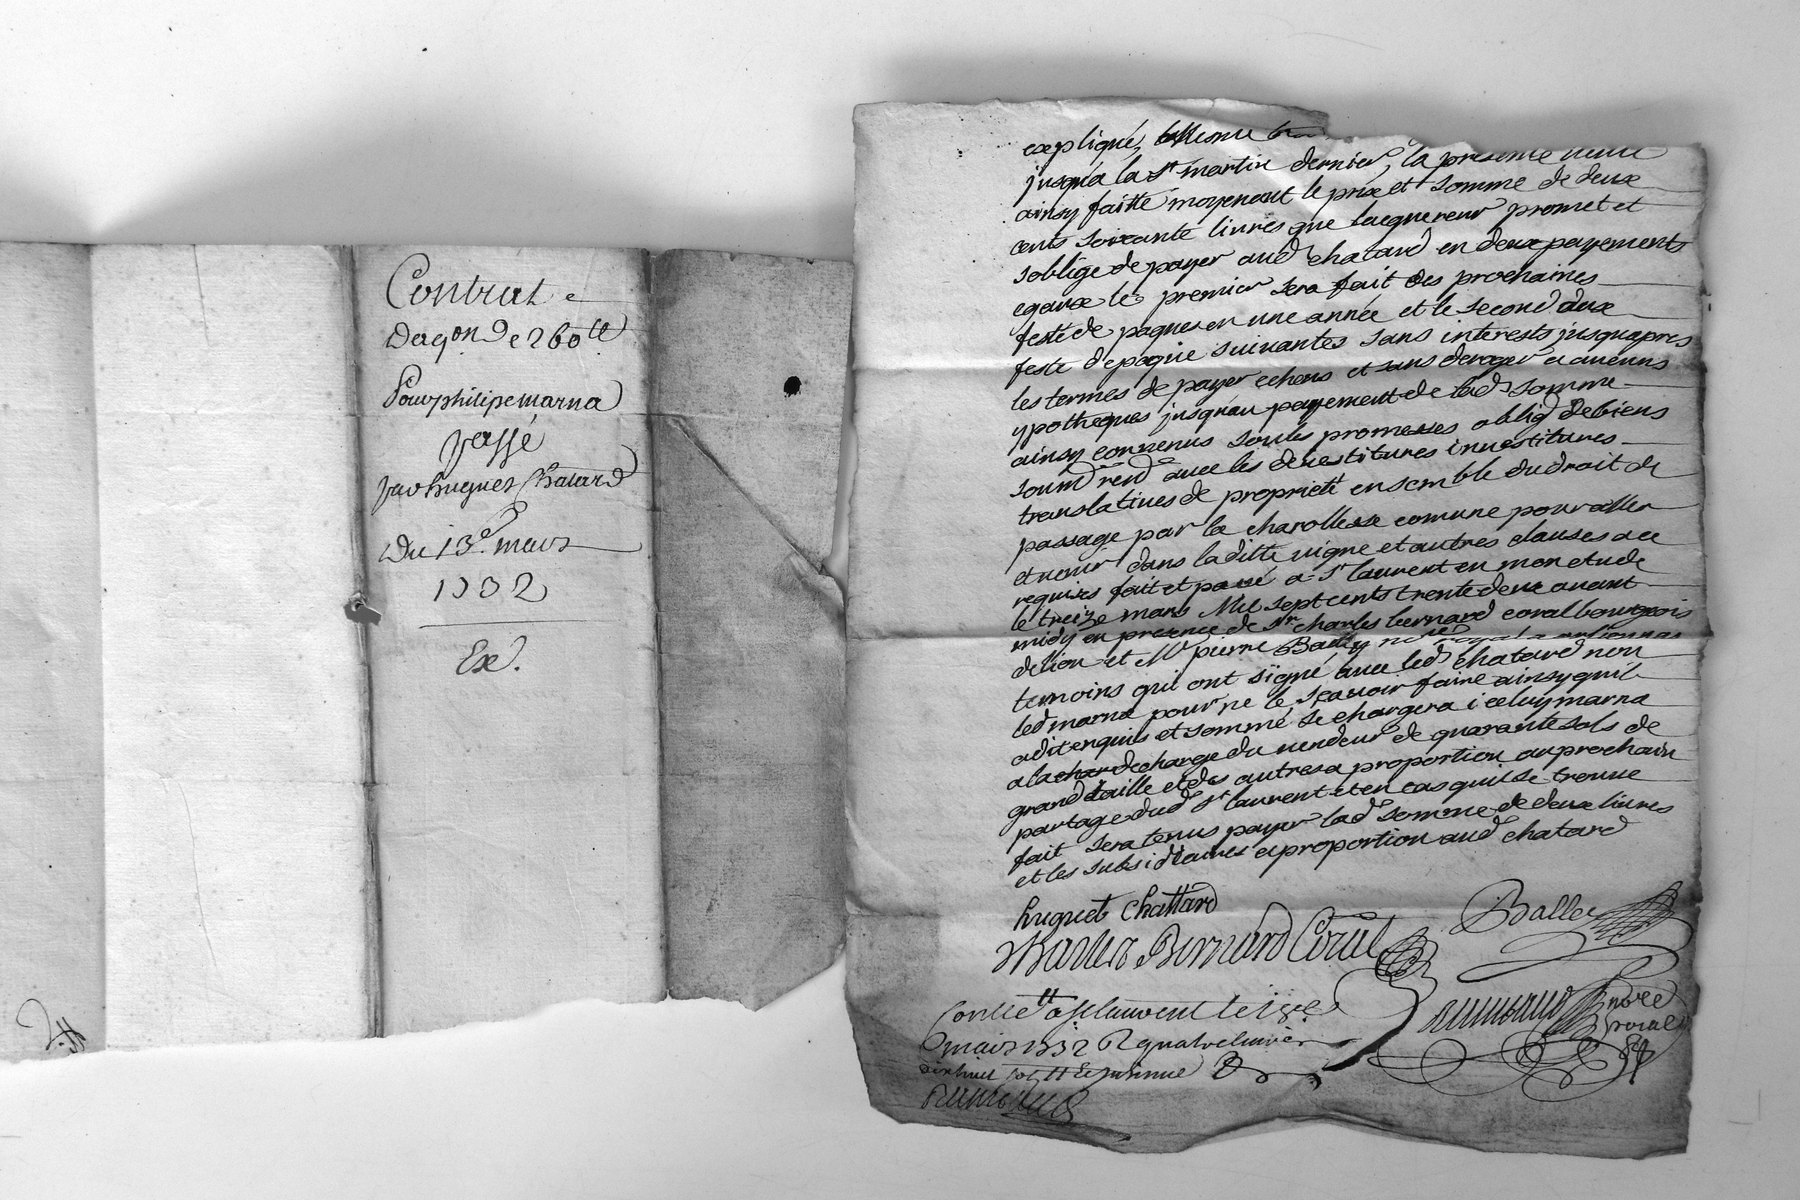 Contrat
Dacqon De 260 ll
Pour philipe marna
passé
par hugues Chatard
Du 13e mars
1732
Ex.
expliqué,
jusqua la st martin dernier, la presente vente
ainsy faitte moyenant le prix et somme de deux
cents soixante livres que lacquereur promet et
soblige de payer aud chatard en deux payements
egaux le premier sera fait des prochaines
feste de paques en une année et le second aux
feste de paque suivantes sans interests jusquapres
les termes de payer echeus et sans deroger a aucuns
ypotheques jusquau payement de lad somme
ainsy convenus soubs promesses oblig de biens
soumd rend avec les devestitures investitures
translatives de proprieté ensemble du droit de
passage par la charollesse comune pour aller
et venir dans laditte vigne et autres clauses a ce
requises fait et passé a st laurent en mon etude
le treize mars Mil sept cents trente deux avant
midy en presence de sr charles bernard coral bourgeois
de lion et Me pierre Bally
temoins qui ont signé avec led chatard non
led marna pour ne le sçavoir faire ainsy quil
a dit enquis et sommé, se chargera iceluy marna
a la decharge du vendeur de quarante sols de
grand taille et des autres a proportion au prochain
partage dud st laurent et en cas quil se treuve
fait sera tenus payer lad somme de deux livres
et les subsidiaires a proportion aud chatard
hugues Chattard
Charles Bernard Coral
Balley
nore
roial
Contlé a st laurent le
mars 1732 R quatre livres